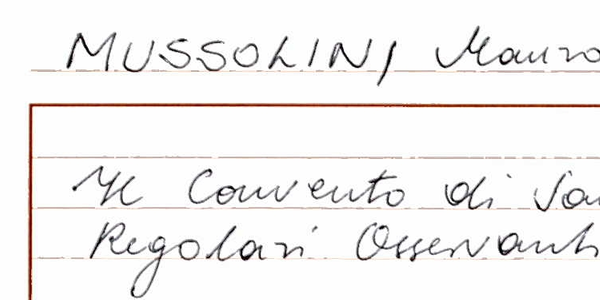 MUSSOLINI
Il Convento di
Regolari Osservanti